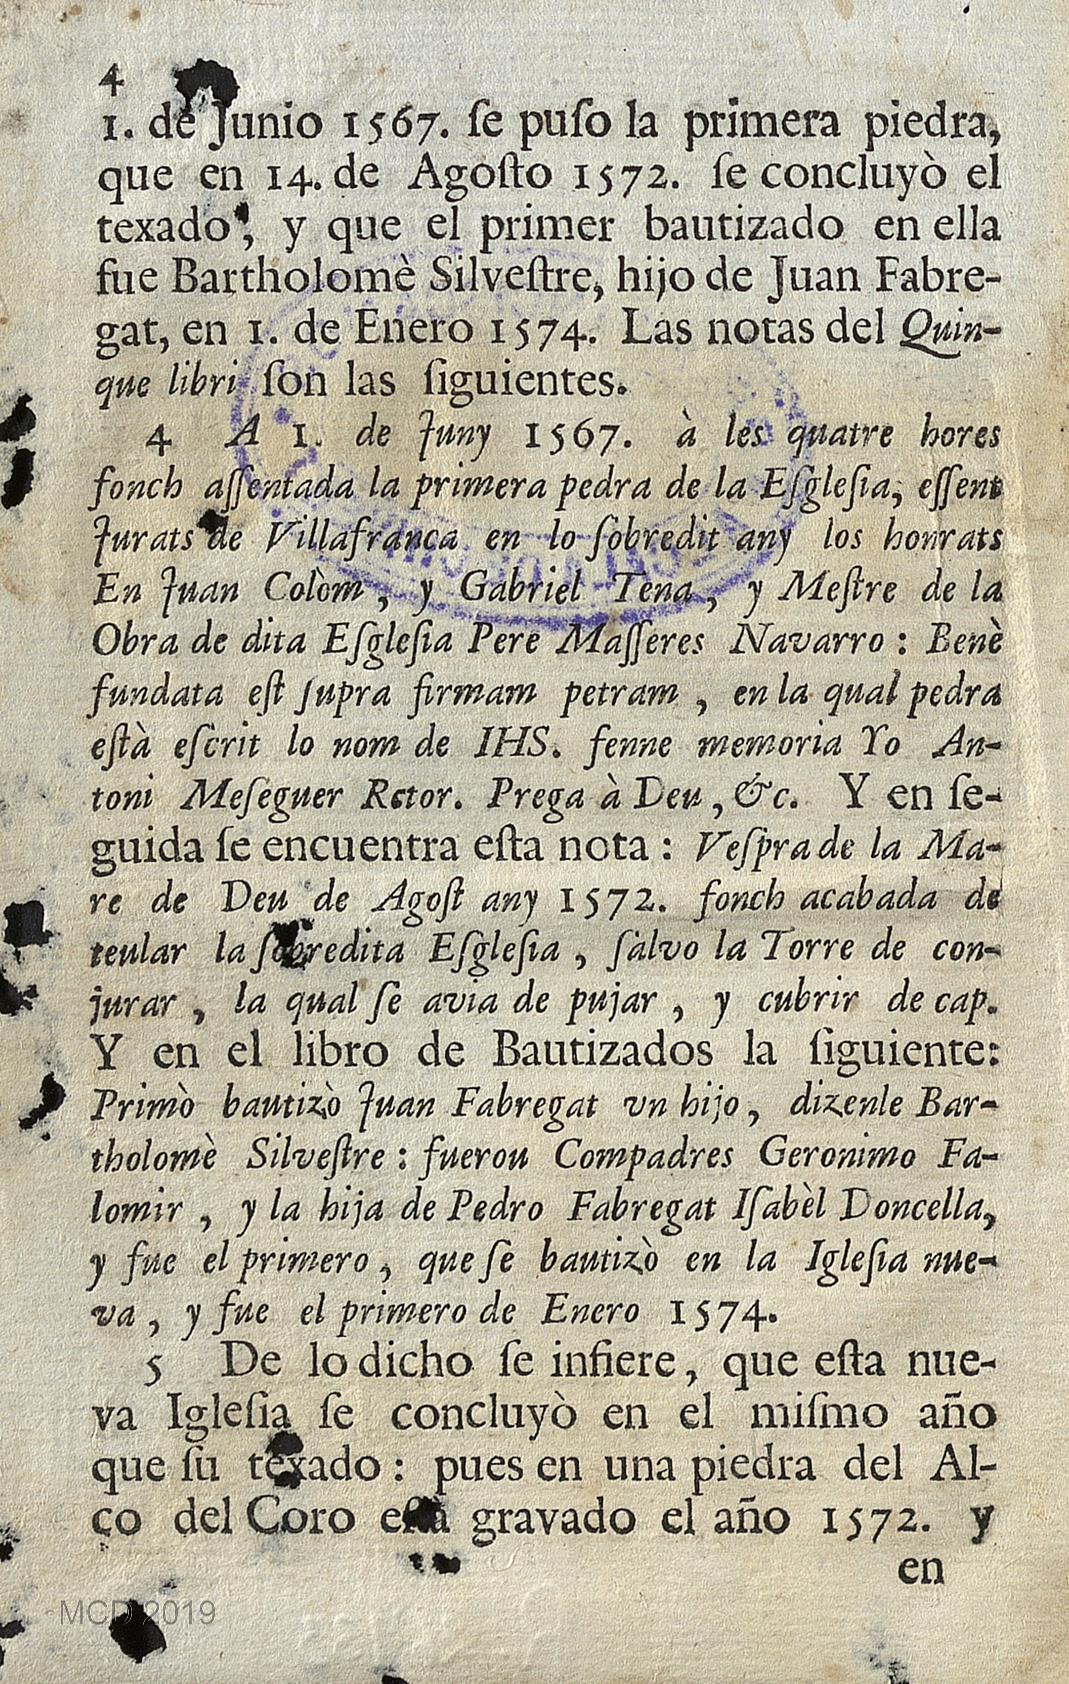 4
1. de Junio 1567. ſe puſo la primera piedra,
que en 14. de Agoſto 1572. ſe concluyò el
texado, y que el primer bautizado en ella
fue Bartholomè Silveſtre, hijo de Juan Fabre-
gat, en 1. de Enero 1574. Las notas del Quin-
que libri ſon las ſiguientes.
4 A 1. de Juny 1567. à les quatre hores
fonch aſſentada la primera pedra de la Eſgleſia, eſſent
Jurats de Villafranca en lo ſobredit any los honrats
En Juan Colòm, y Gabriel Tena, y Meſtre de la
Obra de dita Eſgleſia Pere Maſſeres Navarro: Benè
fundata eſt ſupra firmam petram, en la qual pedra
eſtà eſcrit lo nom de IHS. fenne memoria Yo An-
toni Meſeguer Rctor. Prega à Deu, &c. Y en ſe-
guida ſe encuentra eſta nota: Veſpra de la Ma-
re de Deu de Agoſt any 1572. fonch acabada de
teular la ſobredita Eſgleſia, ſalvo la Torre de con-
jurar, la qual ſe avia de pujar, y cubrir de cap.
Y en el libro de Bautizados la ſiguiente:
Primò bautizò Juan Fabregat vn hijo, dizenle Bar-
tholomè Silveſtre: fuerou Compadres Geronimo Fa-
lomir, y la hija de Pedro Fabregat Iſabèl Doncella,
y fue el primero, que ſe bautizò en la Igleſia nue-
va, y fue el primero de Enero 1574.
5 De lo dicho ſe infiere, que eſta nue-
va Igleſia ſe concluyò en el miſmo año
que ſu texado: pues en una piedra del Al-
ço del Coro eſtà gravado el año 1572. y
en
MCD 2019